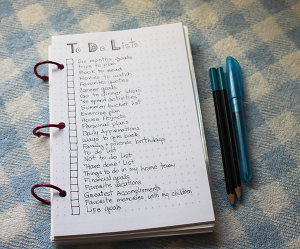 To Do Lists
Six months goals
Trips to plan
Book to read
Movies to watch
Favorite quotes
Career goals
Go to dinner ideas
"No spend activities"
Summer bucket list
Exercise plan
House Projects
Personal plans
Daily Affirmations
Ways to give back
Family + friends birthdays
To do list
Not to do list
"Have done" List
Things to do in my home town
Financial goals
Favorite vacations
Greatest Accomplishments
Favorite memories with my children
Life goals